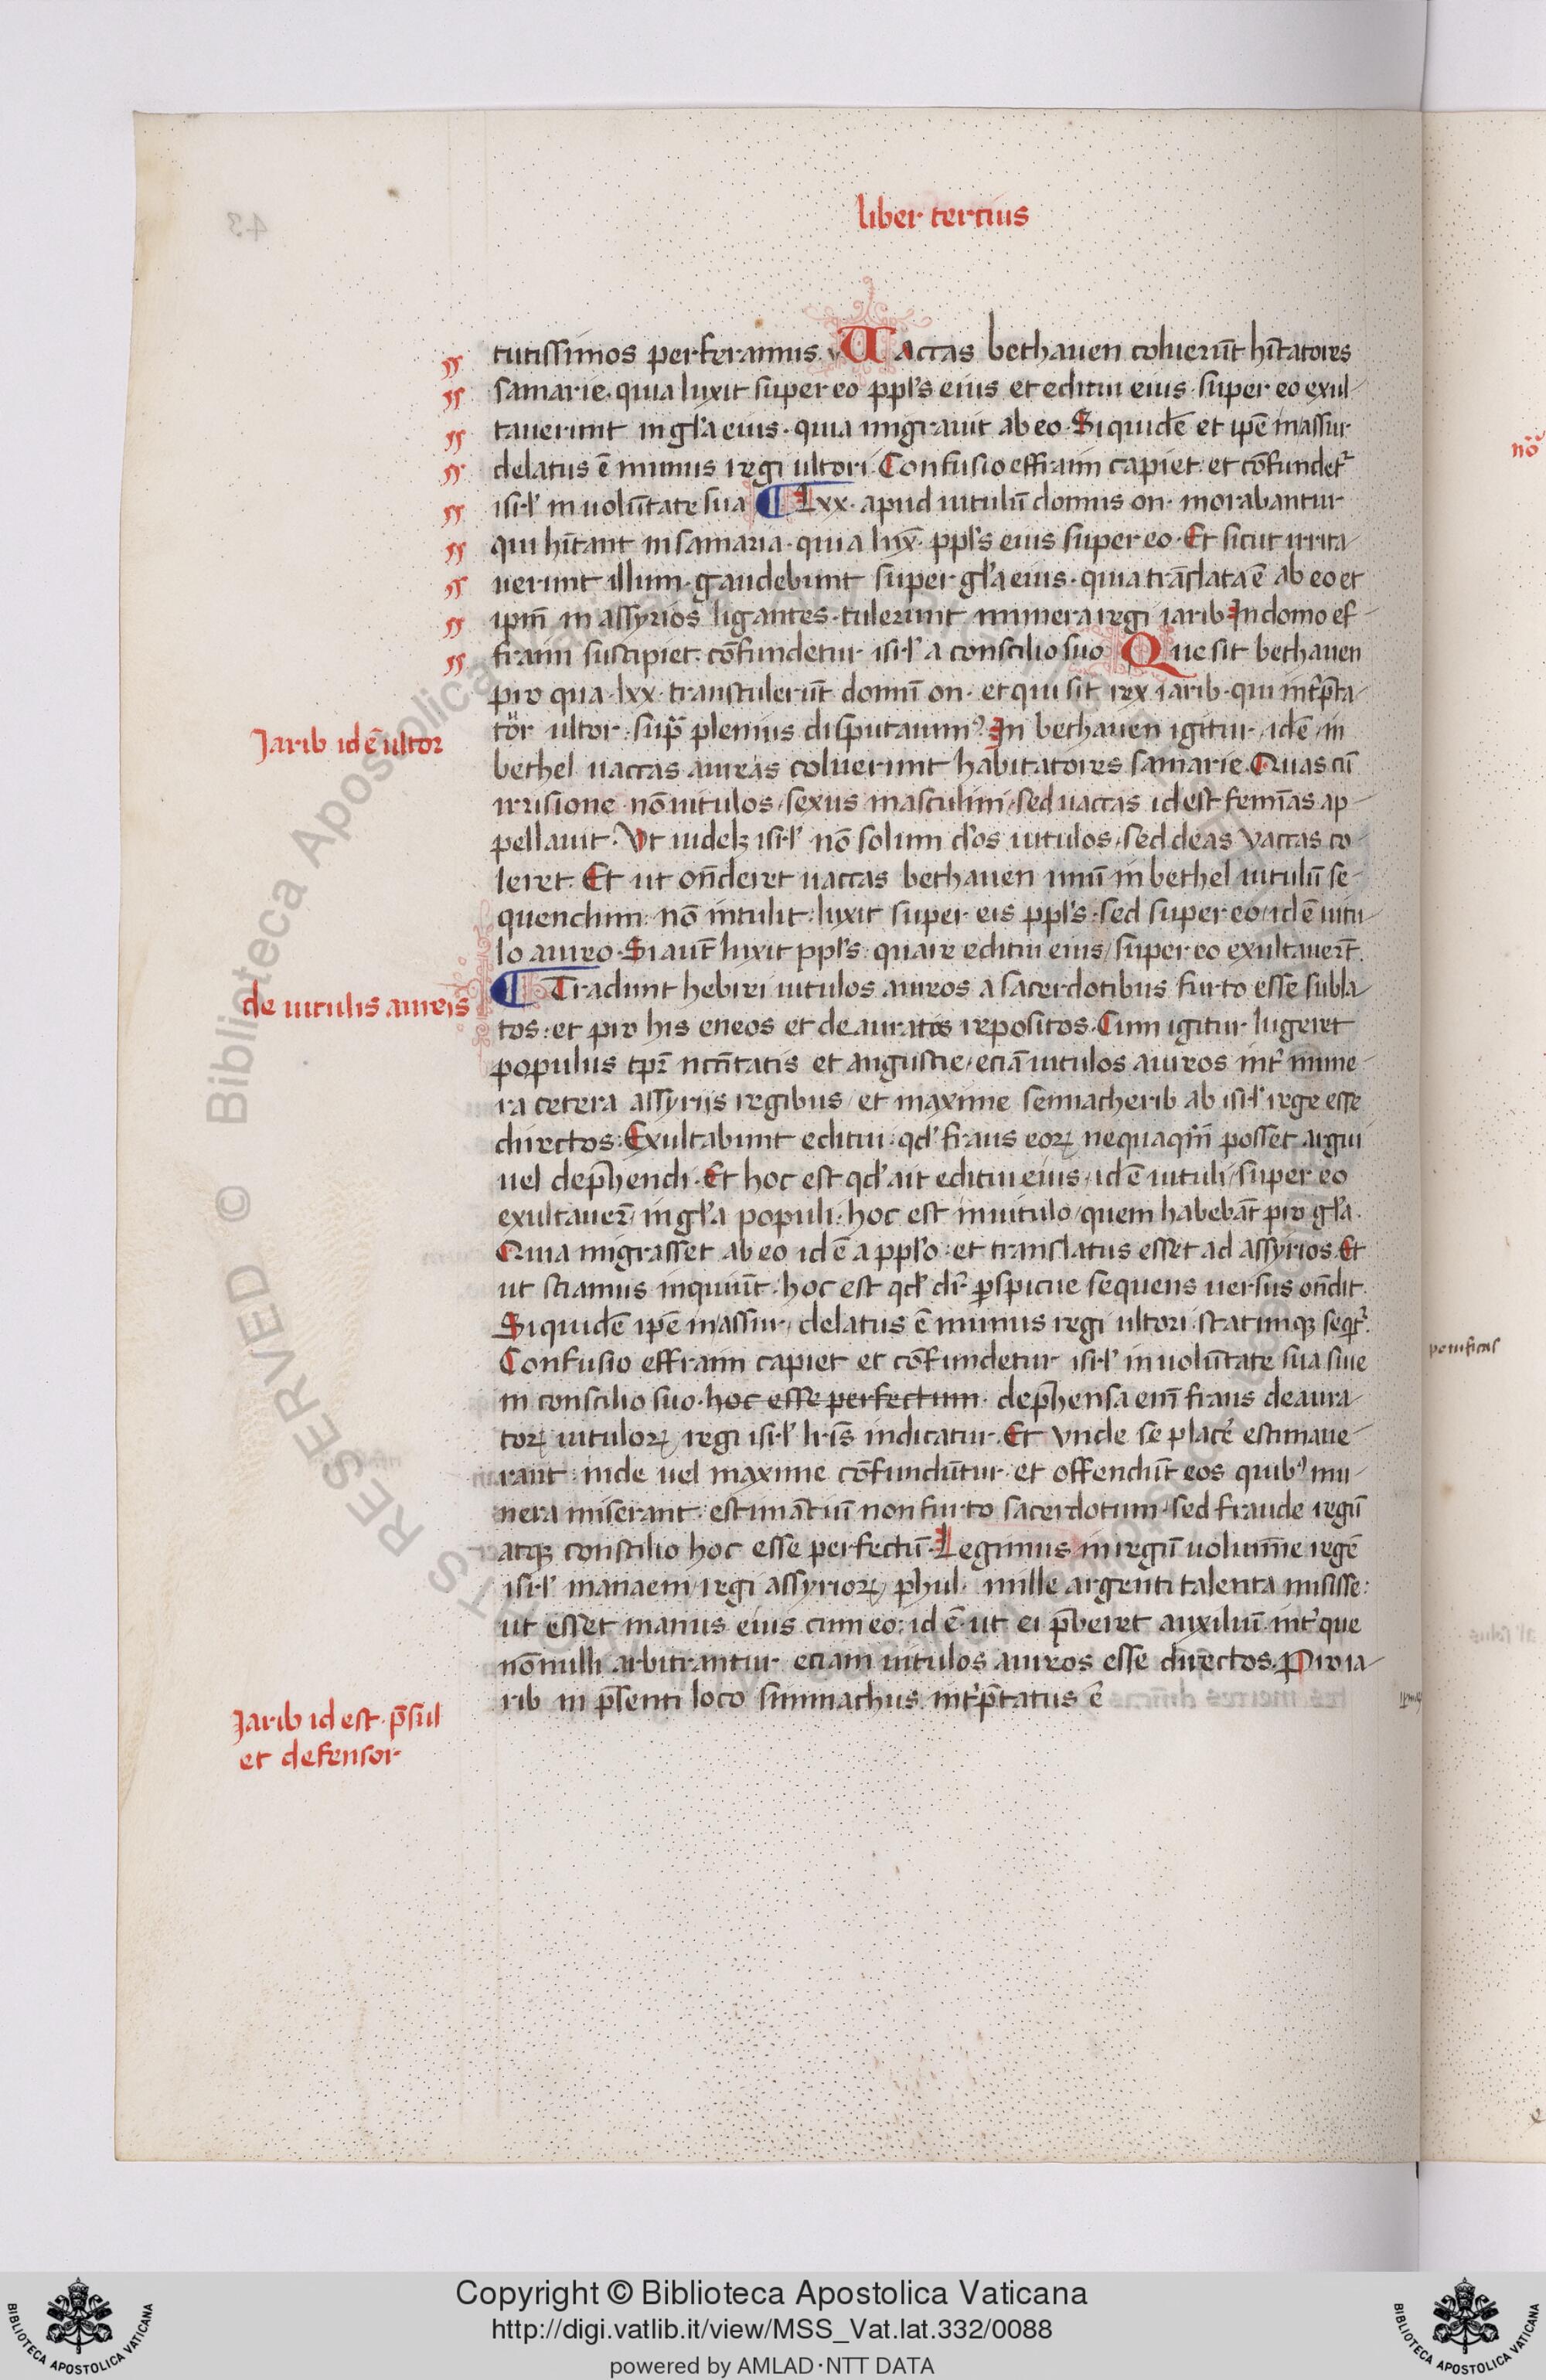 liber tercius
tutissimos perferamus. Vaccas bethauen coluerūt hītatores
samarie. quia luxit super eo ppl's eius et editui eius super eo exul-
tauerunt in gl'a eius. quia migrauit ab eo. Siquidē et ipē in assur
delatus ē munus regi ultori. Confusio effraim capiet. et cōfundet᷑
isr'l' in uolūtate sua. Lxx. apud uitulū domus on. morabantur
qui hītant in samaria. quia lux̄. ppl's eius super eo. Et sicut irrita-
uerunt illum. gaudebunt super gl'a eius. quia trāslata ē ab eo et
ipm̄ in assyrios ligantes. tulerunt munera regi iarib. In domo ef-
fraim suscipiet. cōfundetur isr'l' a consilio suo. Que sit bethauen
pro qua lxx. transtulerūt domū on. et qui sit rex iarib. qui int'p̄ta-
tor ultor. sup᷑ plenius disputauim᷒. In bethauen igitur, idē in
Jarib id ē ultor
bethel uaccas aureas coluerunt habitatores samarie. Quas cū
irrisione nō uitulos, sexus masculini, sed uaccas id est femīas ap-
pellauit. Vt uidelꝫ isr'l' nō solum d'os uitulos, sed deas vaccas co-
leret. Et ut on̄deret uaccas bethauen unū in bethel uitulū se-
quendum: nō intulit: luxit super eis ppl's. sed super eo, id ē uitu-
lo aureo. Si aut̄ luxit ppl's: quare editui eius, super eo exultauer̄t.
Tradunt hebrei uitulos aureos a sacerdotibus furto esse subla-
de uitulis aureis
tos: et pro his eneos et deauratos repositos. Cum igitur lugeret
populus tpr̄ nccītatis et angustie, eciā uitulos aureos int' mune-
ra cetera assyrijs regibus, et maxime sennacherib ab isr'l' rege esse
directos: Exultabunt editui: qd' fraus eoꝝ nequaqm̄ posset argui
uel dep̄hendi. Et hoc est qd' ait editui eius, id ē uituli, super eo
exultauer̄, in gl'a populi: hoc est in uitulo, quem habebāt pro gl'a.
Quia migrasset ab eo id ē a ppl'o: et translatus esset ad assyrios. Et
ut sciamus inquiūt, hoc est qd' dr᷑ ꝑspicue sequens uersus on̄dit.
Siquidē ipē in assur, delatus ē munus regi ultori. statimqꝫ seqt᷑.
Confusio effraim capiet et cōfundetur isr'l' in uolūtate sua siue
in consilio suo. hoc esse perfectum. dep̄hensa eni᷑ fraus deaura-
toꝝ uituloꝝ regi isr'l' lr̄is indicatur. Et vnde se placē estimaue-
rant: inde uel maxime cōfundūtur. et offendūt eos quib᷒ mu-
nera miserant. estimātiū non furto sacerdotum, sed fraude regū
atqꝫ consilio hoc esse perfectū. Legimus in regū uolumīe regē
isr'l' manaem, regi assyrioꝝ, phul. mille argenti talenta misisse:
ut esset manus eius cum eo: id ē ut ei p̄beret auxiliū. int' que
nōnulli arbitrantur eciam uitulos aureos esse directos. Pro ia-
rib in p̄senti loco simmachus int'p̄tatus ē
Jarib id est. p̄sul
et defensor
Copyright © Biblioteca Apostolica Vaticana
http://digi.vatlib.it/view/MSS_Vat.lat.332/0088
powered by AMLAD·NTT DATA
BIBLIOTECA APOSTOLICA VATICANA
BIBLIOTECA APOSTOLICA VATICANA